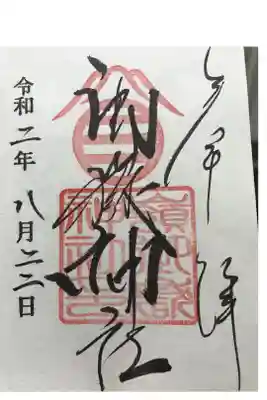 奉拝
御嶽神社
令和二年 八月二二日